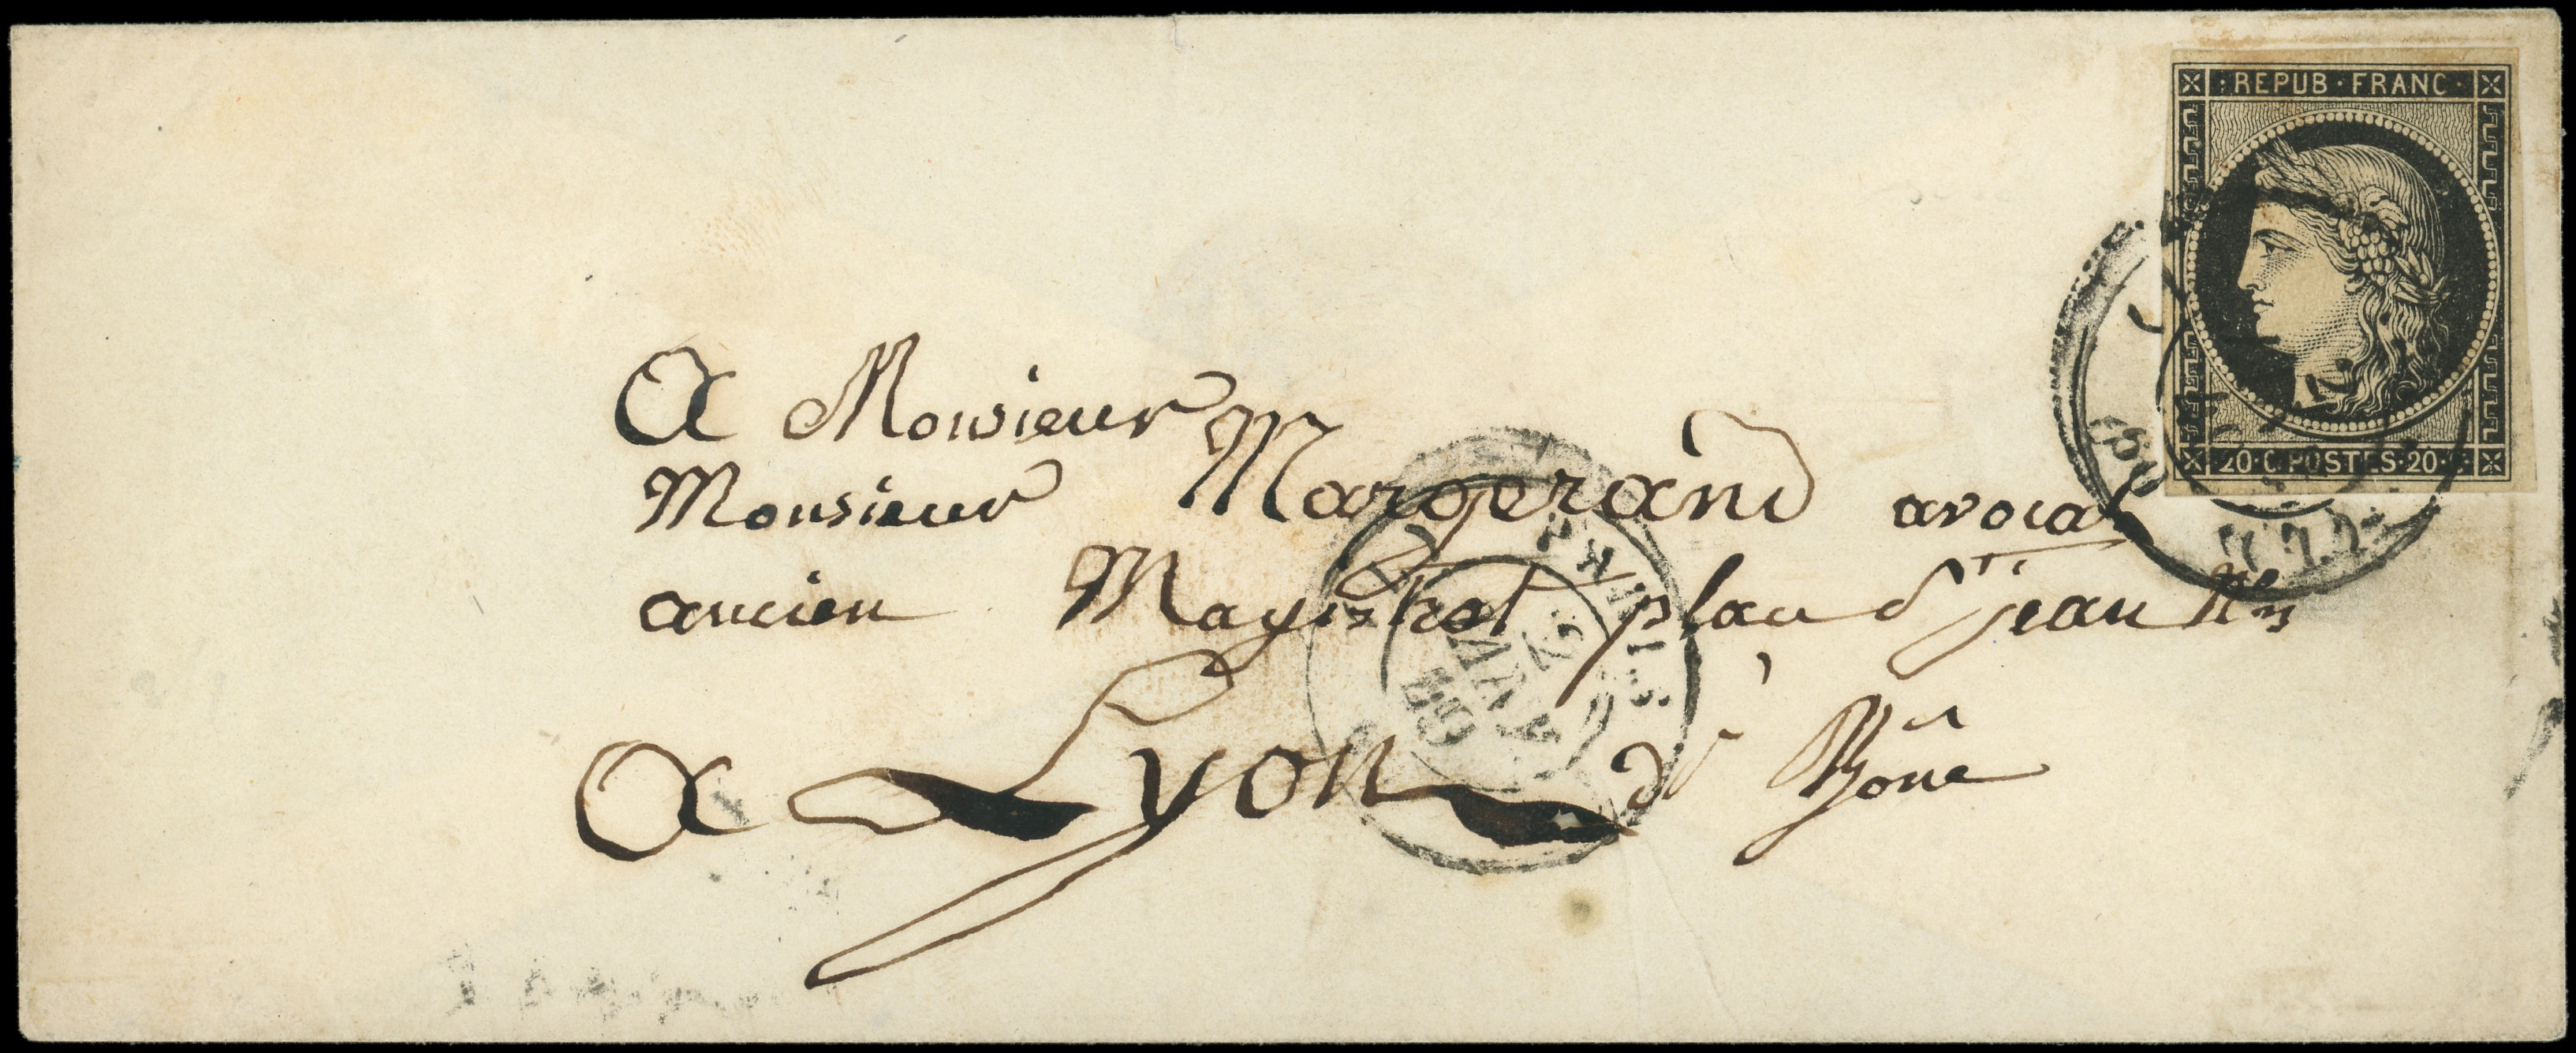 REPUB · FRANC ·
20 · C. POSTES · 20 · C
A Monsieur
Monsieur Margerand avocat
ancien Magistrat place St jean
A Lyon
JANV